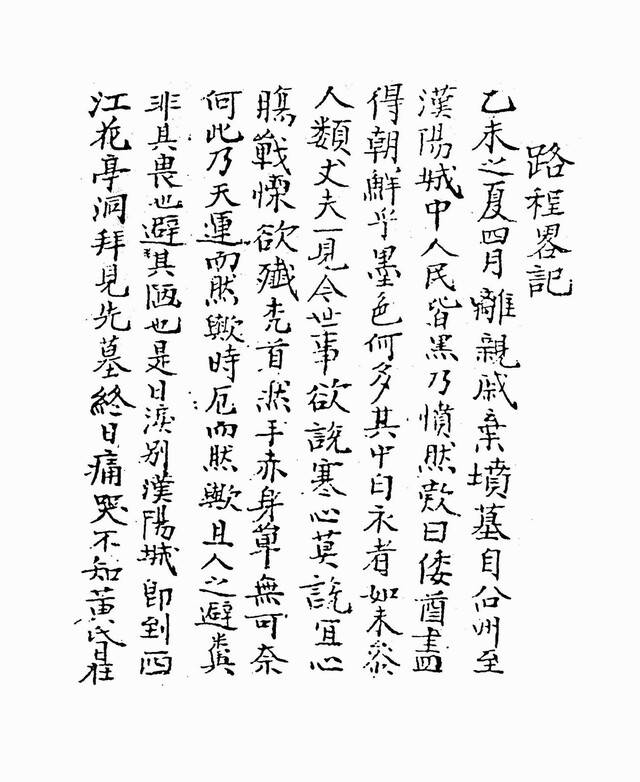 路程畧記
乙未之夏四月離親戚棄墳墓自公州至
漢陽城中人民皆黑乃憤然歎曰倭酋盡
得朝鮮乎墨色何多其中白衣者如未參
人類丈夫一見今世事欲說寒心莫說宜心
腸戰慄欲殲禿首然手赤身單無可奈
何此乃天運而然歟時厄而然歟且人之避糞
非其畏也避其陋也是日淚別漢陽城卽到西
江花亭洞拜見先墓終日痛哭不知黃昏在